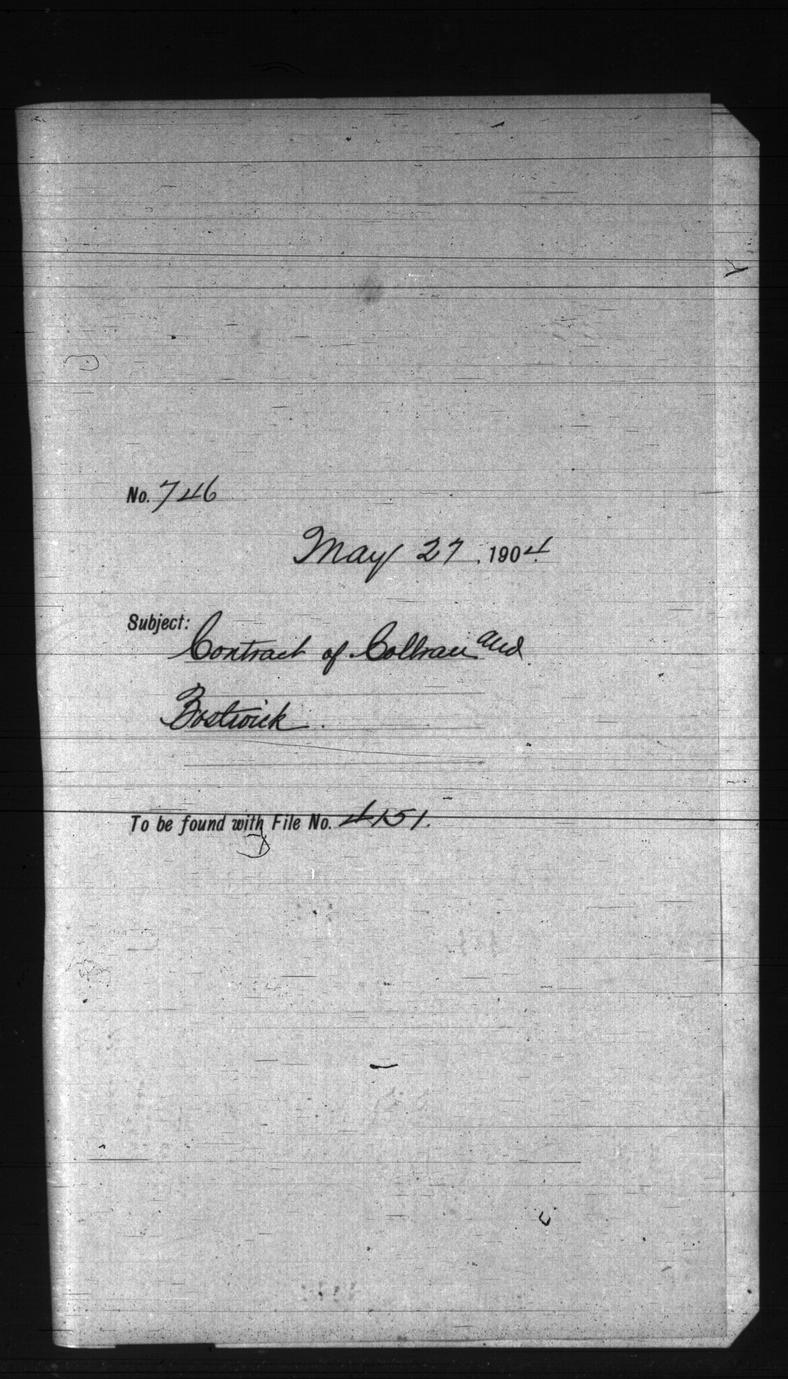 No. 746
May 27, 1904.
Subject:
Contract of Collbran and
Bostwick.
To be found with File No. 4151.